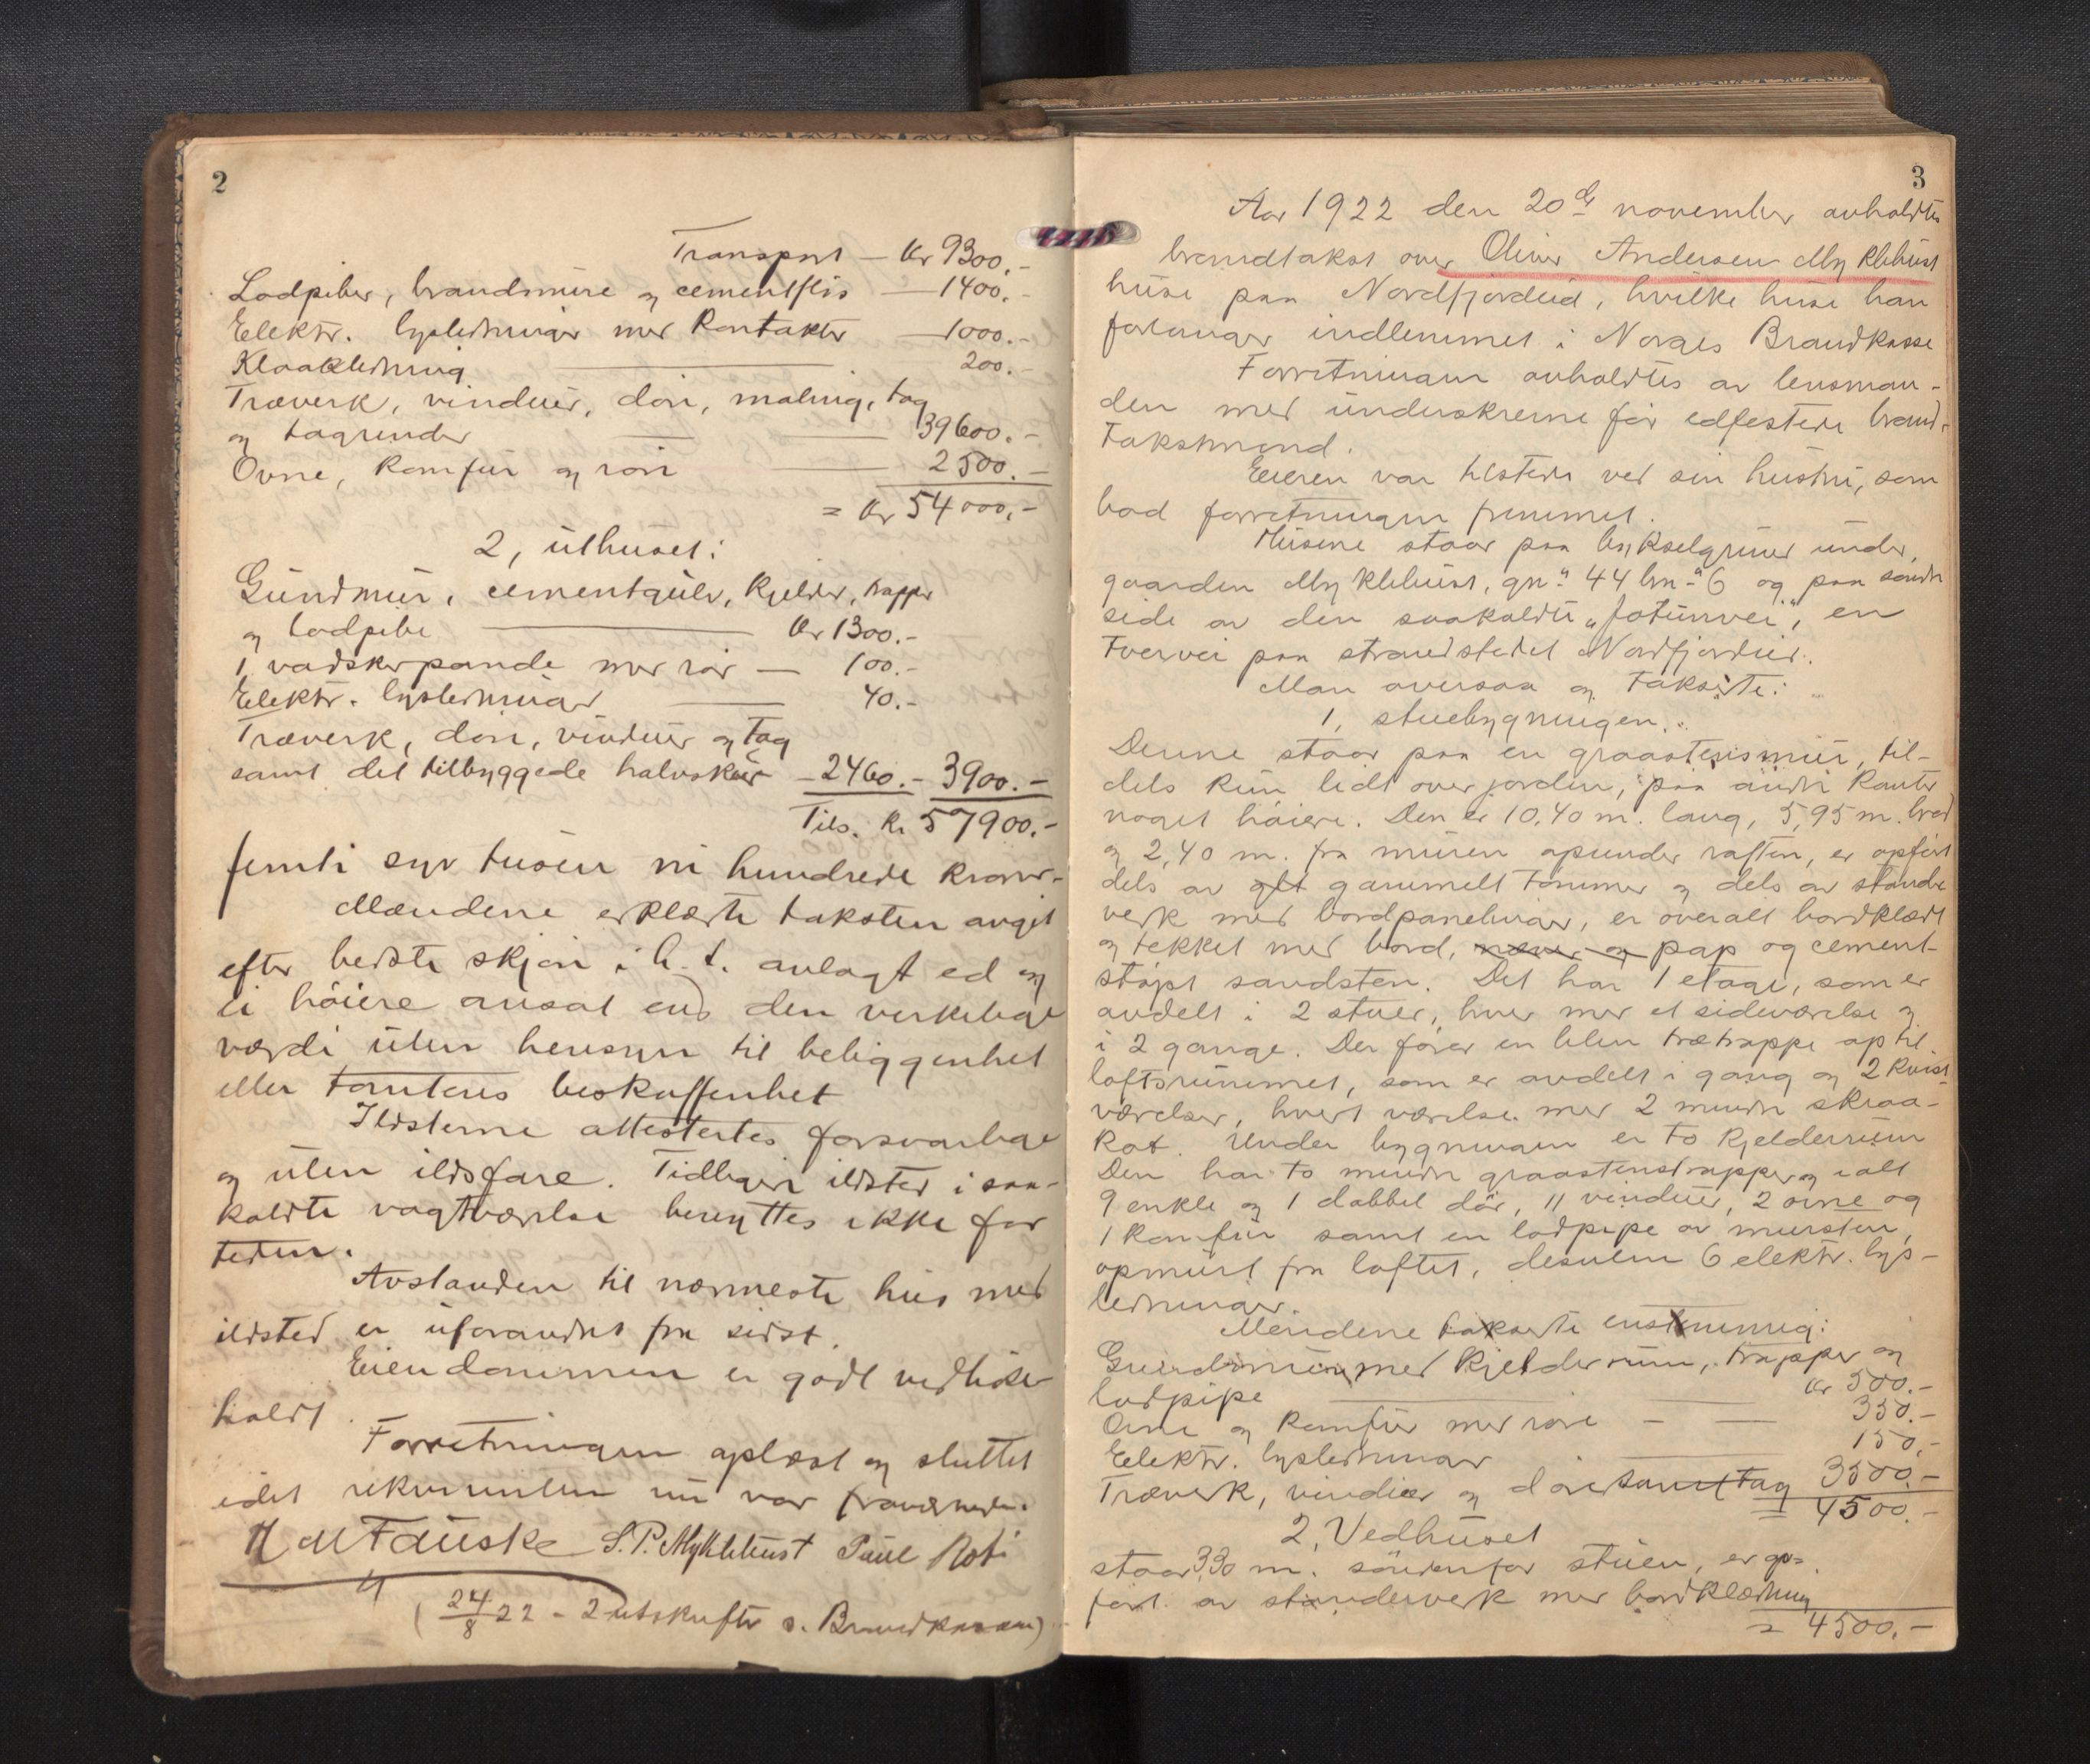 2
Transport — Kr 9300.-
Lodpiber, brandmure og cementflis — 1400.-
Elektr. lysledninger med kontakter — 1000.-
Kloakledning — 200.-
Træverk, vinduer, dør, maling, tag
og tagrender — — 39600.-
Ovne, komfur og rør — 2500.-
= Kr 54000.-
2, uthuset:
Gundmur, cementgulv, kjelder, trapper
og lodpibe — Kr 1300.-
1 vadskepande med rør — 100.-
Elektr. lysledninger — 40.-
Træverk, dør, vinduer og tag
samt det tilbyggede halvskur — 2460.- 3900.-
Tils. Kr 57900.-
femti syv tusen ni hundrede kroner.-
Mændene erklærte taksten avgit
efter bedste skjøn i h. t. avlagt ed og
ei høiere ansat end den verkelige
værdi uten hensyn til beliggenhet
eller tomtens beskaffenhet
Ildsterne attestertes forsvarlige
og uten ildsfare. Tidligere ildsted i saa-
kaldte vagtværelse benyttes ikke for
tiden.
Avstanden til nærmeste hus med
ildsted er uforandret fra sidst.
Eiendommen er godt vedlike-
holdt.
Forretningen oplæst og sluttet
idet rekvirenten nu var fraværende.
M Fauske S. P. Myklebust Paul
( 24/8 22 - 2 utskrifter s. Brandkassen)
3
Aar 1922 den 20de november avholdtes
brandtakst over Oliver Andersen Myklebust
huse paa Nordfjordeid, hvilke huse han
forlanger indlemmet i Norges Brandkasse
Forretningen avholdtes av lensman-
den med underskrevne før edfestede brand-
takstmænd.
Eieren var tilstede ved sin hustru, som
bad forretningen fremmet.
Husene staar paa bykselgrund under
gaarden Myklebust, gn. 44 bn. 6 og paa søndre
side av den saakaldte "Jotunvei", en
tvervei paa strandstedet Nordfjordeid.
Man oversaa og takserte:
1, stuebygningen.
Denne staar paa en graastensmur, til-
dels kun lidt over jorden, paa andre kanter
noget høiere. Den er 10,40 m. lang, 5,95 m. bred
og 2,40 m. fra muren opunder raften, er opført
dels av glt gammelt tømmer og dels av stender-
verk med bordpanelinger, er overalt bordklædt
og tekket med bord, næver og pap og cement-
støpt sandsten. Det har 1 etage, som er
avdelt i 2 stuer, hver med et sideværelse og
i 2 gange. Der fører en liten trætrappe op til
loftsrummet, som er avdelt i gang og 2 kvist-
værelser, hvert værelse med 2 mindre skraa-
kot. Under bygningen er to kjelderrum
Den har to mindre graastenstrapper og ialt
9 enkle og 1 dobbel dør, 11 vinduer, 2 ovne og
1 komfur samt en lodpipe av mursten,
opmurt fra loftet, desuten 6 elektr. lys-
ledninger.
Mendene takserte enstemmig:
Grundmuren med kjelderrum, trapper og
lodpipe — Kr 500.-
Ovne og komfur med røre — — 350.-
Elektr. lysledninger — 150.-
Træverk, vinduer og døre samt tag 3500.-
= 4500.-
2, Vedhuset
staar 3,30 m. søndenfor stuen, er op-
ført av stenderverk med bordklædning
= 4500.-